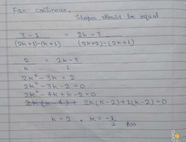 For collinear,
Slopes should be equal
3-1 = 2k-5
(2k+1)-(k+1) (2k+2)-(2k+1)
2 = 2k-5
k 1
2k²-3k = 2
2k²-3k-2=0
2k²-4k+k-2=0
2k(k-2)+1(k-2)=0
k=2, k=-1
2 Ans